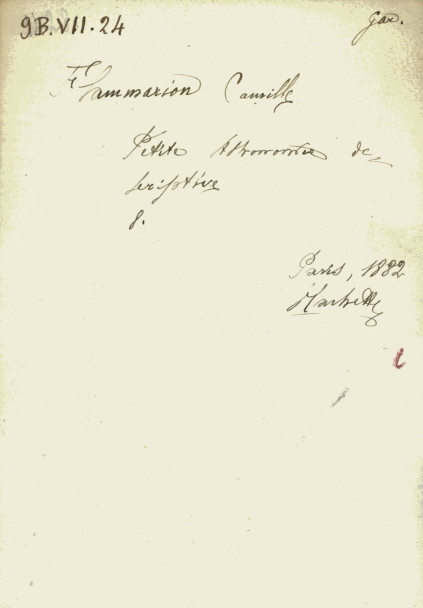 9B.VII.24
Gar.
Flammarion Camille
Petite Astronomie de-
scriptive
8.
Paris, 1882
Hachette